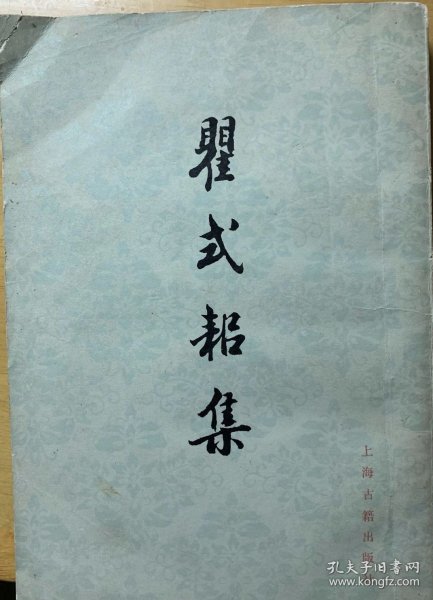 瞿式耜集
上海古籍出版
孔夫子旧书网
kongfz.com